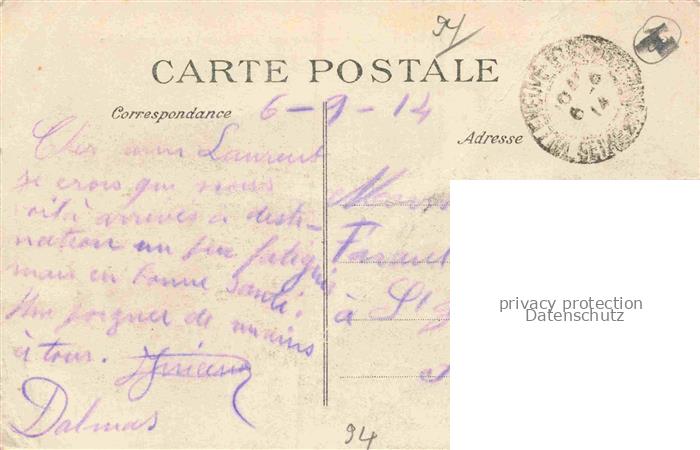 94
CARTE POSTALE
Correspondance
6-9-14
Adresse
Cher ami Laurent
je crois que nous
voilà arrivés à desti-
nation un peu fatigué
mais en bonne santé.
Une poignée de mains
à tous.
Dalmas
à St
94
privacy protection
Datenschutz